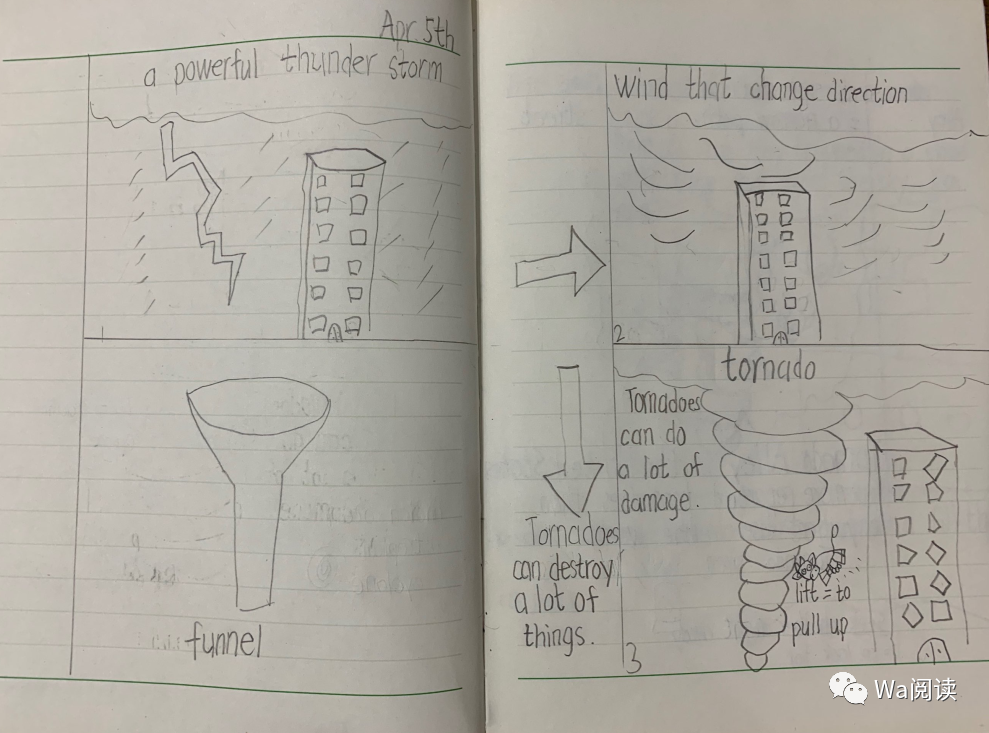 Apr. 5th
a powerful thunder storm
1
funnel
Wind that change direction
2
tornado
Tornadoes
can do
a lot of
damage.
Tornadoes
can destroy
a lot of
things.
lift = to
pull up
3
Wa阅读